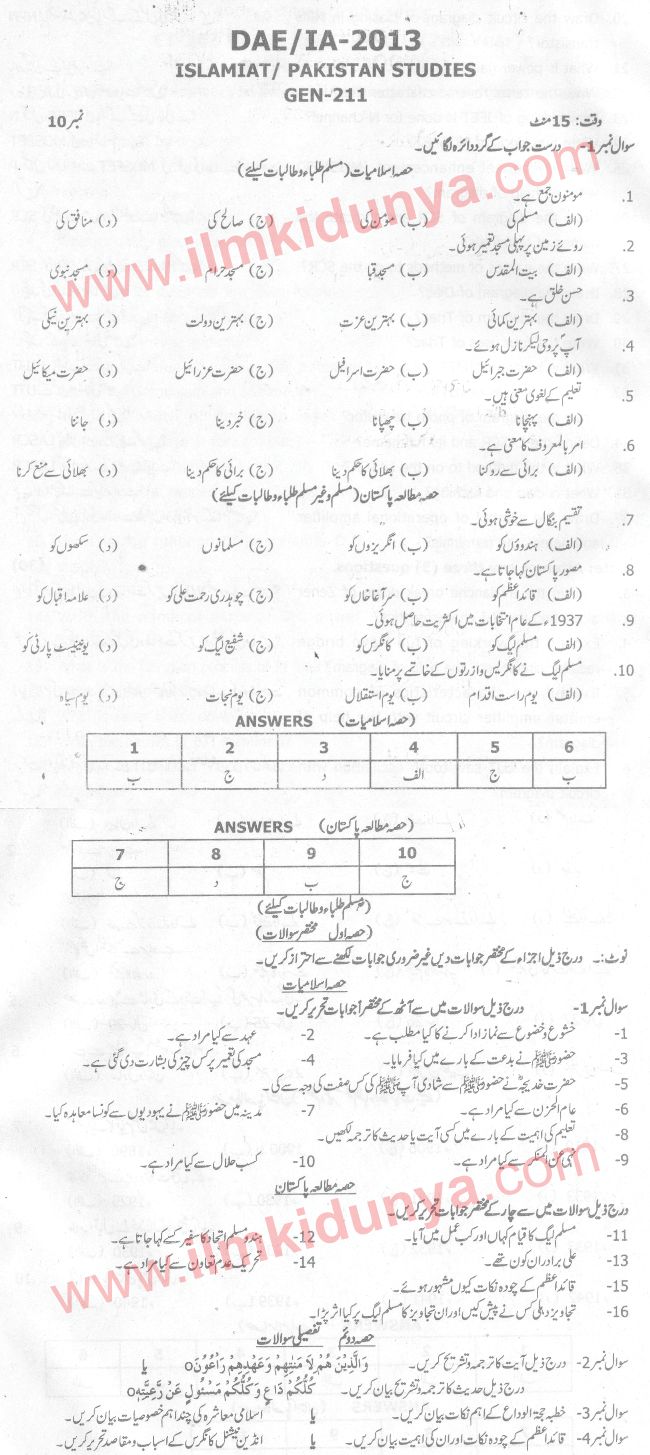 DAE/IA-2013
ISLAMIAT/ PAKISTAN STUDIES
GEN-211
وقت: 15 منٹ نمبر 10
سوال نمبر 1- درست جواب کے گرد دائرہ لگائیں۔
حصہ اسلامیات (مسلم طلباء و طالبات کیلئے)
1. مومنون جمع ہے۔
(الف) مسلم کی (ب) مومن کی (ج) صالح کی (د) منافق کی
2. روئے زمین پر پہلی مسجد تعمیر ہوئی۔
(الف) بیت المقدس (ب) مسجد قبا (ج) مسجد حرام (د) مسجد نبوی
3. حسن خلق ہے۔
(الف) بہترین کمائی (ب) بہترین عزت (ج) بہترین دولت (د) بہترین نیکی
4. آپ پر وحی لیکر نازل ہوئے۔
(الف) حضرت جبرائیل (ب) حضرت اسرافیل (ج) حضرت عزرائیل (د) حضرت میکائیل
5. تعلیم کے لغوی معنی ہیں۔
(الف) پہنچانا (ب) چھپانا (ج) خبر دینا (د) جاننا
6. امر بالمعروف کا معنی ہے۔
(الف) برائی سے روکنا (ب) بھلائی کا حکم دینا (ج) برائی کا حکم دینا (د) بھلائی سے منع کرنا
حصہ مطالعہ پاکستان (مسلم و غیر مسلم طلباء و طالبات کیلئے)
7. تقسیم بنگال سے خوشی ہوئی۔
(الف) ہندوؤں کو (ب) انگریزوں کو (ج) مسلمانوں کو (د) سکھوں کو
8. مصور پاکستان کہا جاتا ہے۔
(الف) قائداعظم کو (ب) سر آغا خاں کو (ج) چوہدری رحمت علی کو (د) علامہ اقبال کو
9. 1937ء کے عام انتخابات میں اکثریت حاصل ہوئی۔
(الف) مسلم لیگ کو (ب) کانگرس کو (ج) شفیع لیگ کو (د) یونینسٹ پارٹی کو
10. مسلم لیگ نے کانگریس وازرتوں کے خاتمے پر منایا۔
(الف) یوم راست اقدام (ب) یوم استقلال (ج) یوم نجات (د) یوم سیاہ
ANSWERS (حصہ اسلامیات)
1 2 3 4 5 6
ب ج د الف ج ب
ANSWERS (حصہ مطالعہ پاکستان)
7 8 9 10
ج د ب ج
(مسلم طلباء و طالبات کیلئے)
حصہ اول مختصر سوالات
نوٹ:۔ درج ذیل اجزاء کے مختصر جوابات دیں غیر ضروری جوابات لکھنے سے احتراز کریں۔
حصہ اسلامیات
سوال نمبر 1- درج ذیل سوالات میں سے آٹھ کے مختصر جوابات تحریر کریں۔
1- خشوع و خضوع سے نماز ادا کرنے کا کیا مطلب ہے۔ 2- عہد سے کیا مراد ہے۔
3- حضور ﷺ نے بدعت کے بارے میں کیا فرمایا۔ 4- مسجد کی تعمیر پر کس چیز کی بشارت دی گئی ہے۔
5- حضرت خدیجہؓ نے حضور ﷺ سے شادی آپ ﷺ کی کس صفت کی وجہ سے کی۔
6- عام الحزن سے کیا مراد ہے۔ 7- مدینہ میں حضور ﷺ نے یہودیوں سے کونسا معاہدہ کیا۔
8- تعلیم کی اہمیت کے بارے میں کسی آیت یا حدیث کا ترجمہ لکھیں۔
9- نہی عن المنکر سے کیا مراد ہے۔ 10- کسب حلال سے کیا مراد ہے۔
حصہ مطالعہ پاکستان
درج ذیل سوالات میں سے چار کے مختصر جوابات تحریر کریں۔
11- مسلم لیگ کا قیام کہاں اور کب عمل میں آیا۔ 12- ہندو مسلم اتحاد کا سفیر کسے کہا جاتا ہے۔
13- علی برادران کون تھے۔ 14- تحریک عدم تعاون سے کیا مراد ہے۔
15- قائداعظم کے چودہ نکات کیوں مشہور ہوئے۔
16- تجاویز دہلی کس نے پیش کیں اور ان تجاویز کا مسلم لیگ پر کیا اثر پڑا۔
حصہ دوئم تفصیلی سوالات
سوال نمبر 2- درج ذیل آیت کا ترجمہ و تشریح کریں۔ وَالَّذِيْنَ هُمْ لِاَ مٰنٰتِهِمْ وَعَهْدِهِمْ رَاعُوْنَ o یا
درج ذیل حدیث کا ترجمہ و تشریح بیان کریں۔ كُلُّكُمْ دَاعٍ وَكُلُّكُمْ مَسْئُولٌ عَنْ رَّعِيَّتِهٖ o
سوال نمبر 3- خطبہ حجۃ الوداع کے اہم نکات بیان کریں۔ یا اسلامی معاشرہ کی چند اہم خصوصیات بیان کریں۔
سوال نمبر 4- قائداعظم کے چودہ نکات اور ان کی اہمیت بیان کریں۔ یا انڈین نیشنل کانگرس کے اسباب و مقاصد تحریر کریں۔
www.ilmkidunya.com
www.ilmkidunya.com
www.ilmkidunya.com